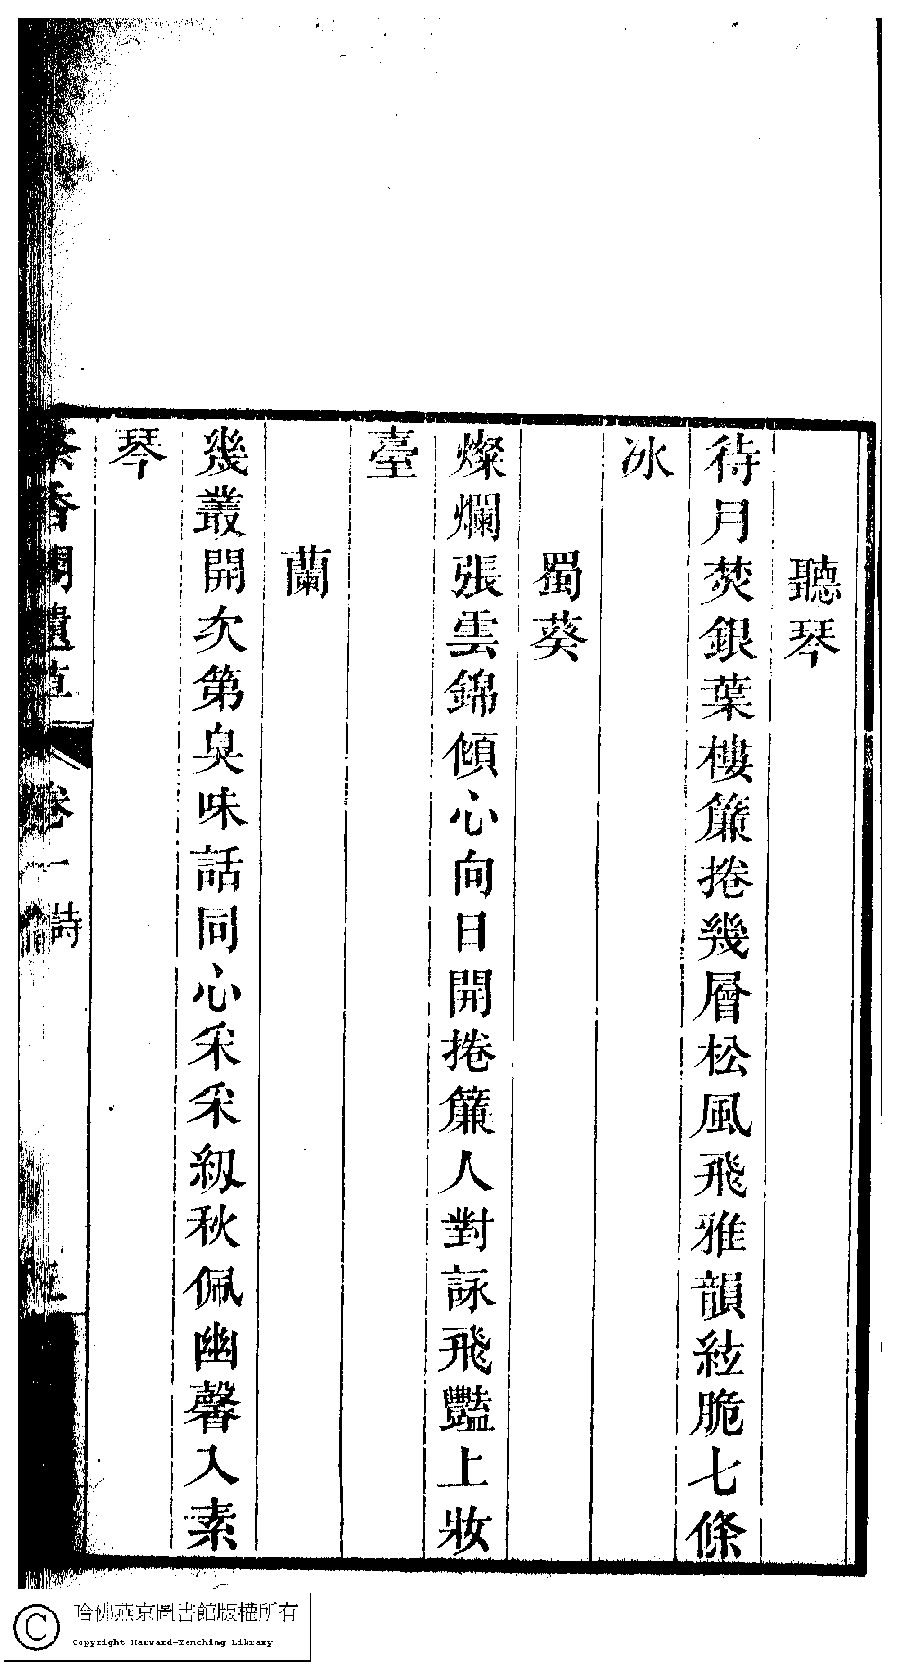 聽琴
待月焚銀葉樓簾捲幾層松風飛雅韻絃脆七條
冰
蜀葵
燦爛張雲錦傾心向日開捲簾人對詠飛豔上妝
臺
蘭
幾叢開次第臭味話同心采采紉秋佩幽馨入素
琴
香閣遺草
卷一
詩
哈佛燕京圖書館版權所有
Copyright Harvard-Yenching Library